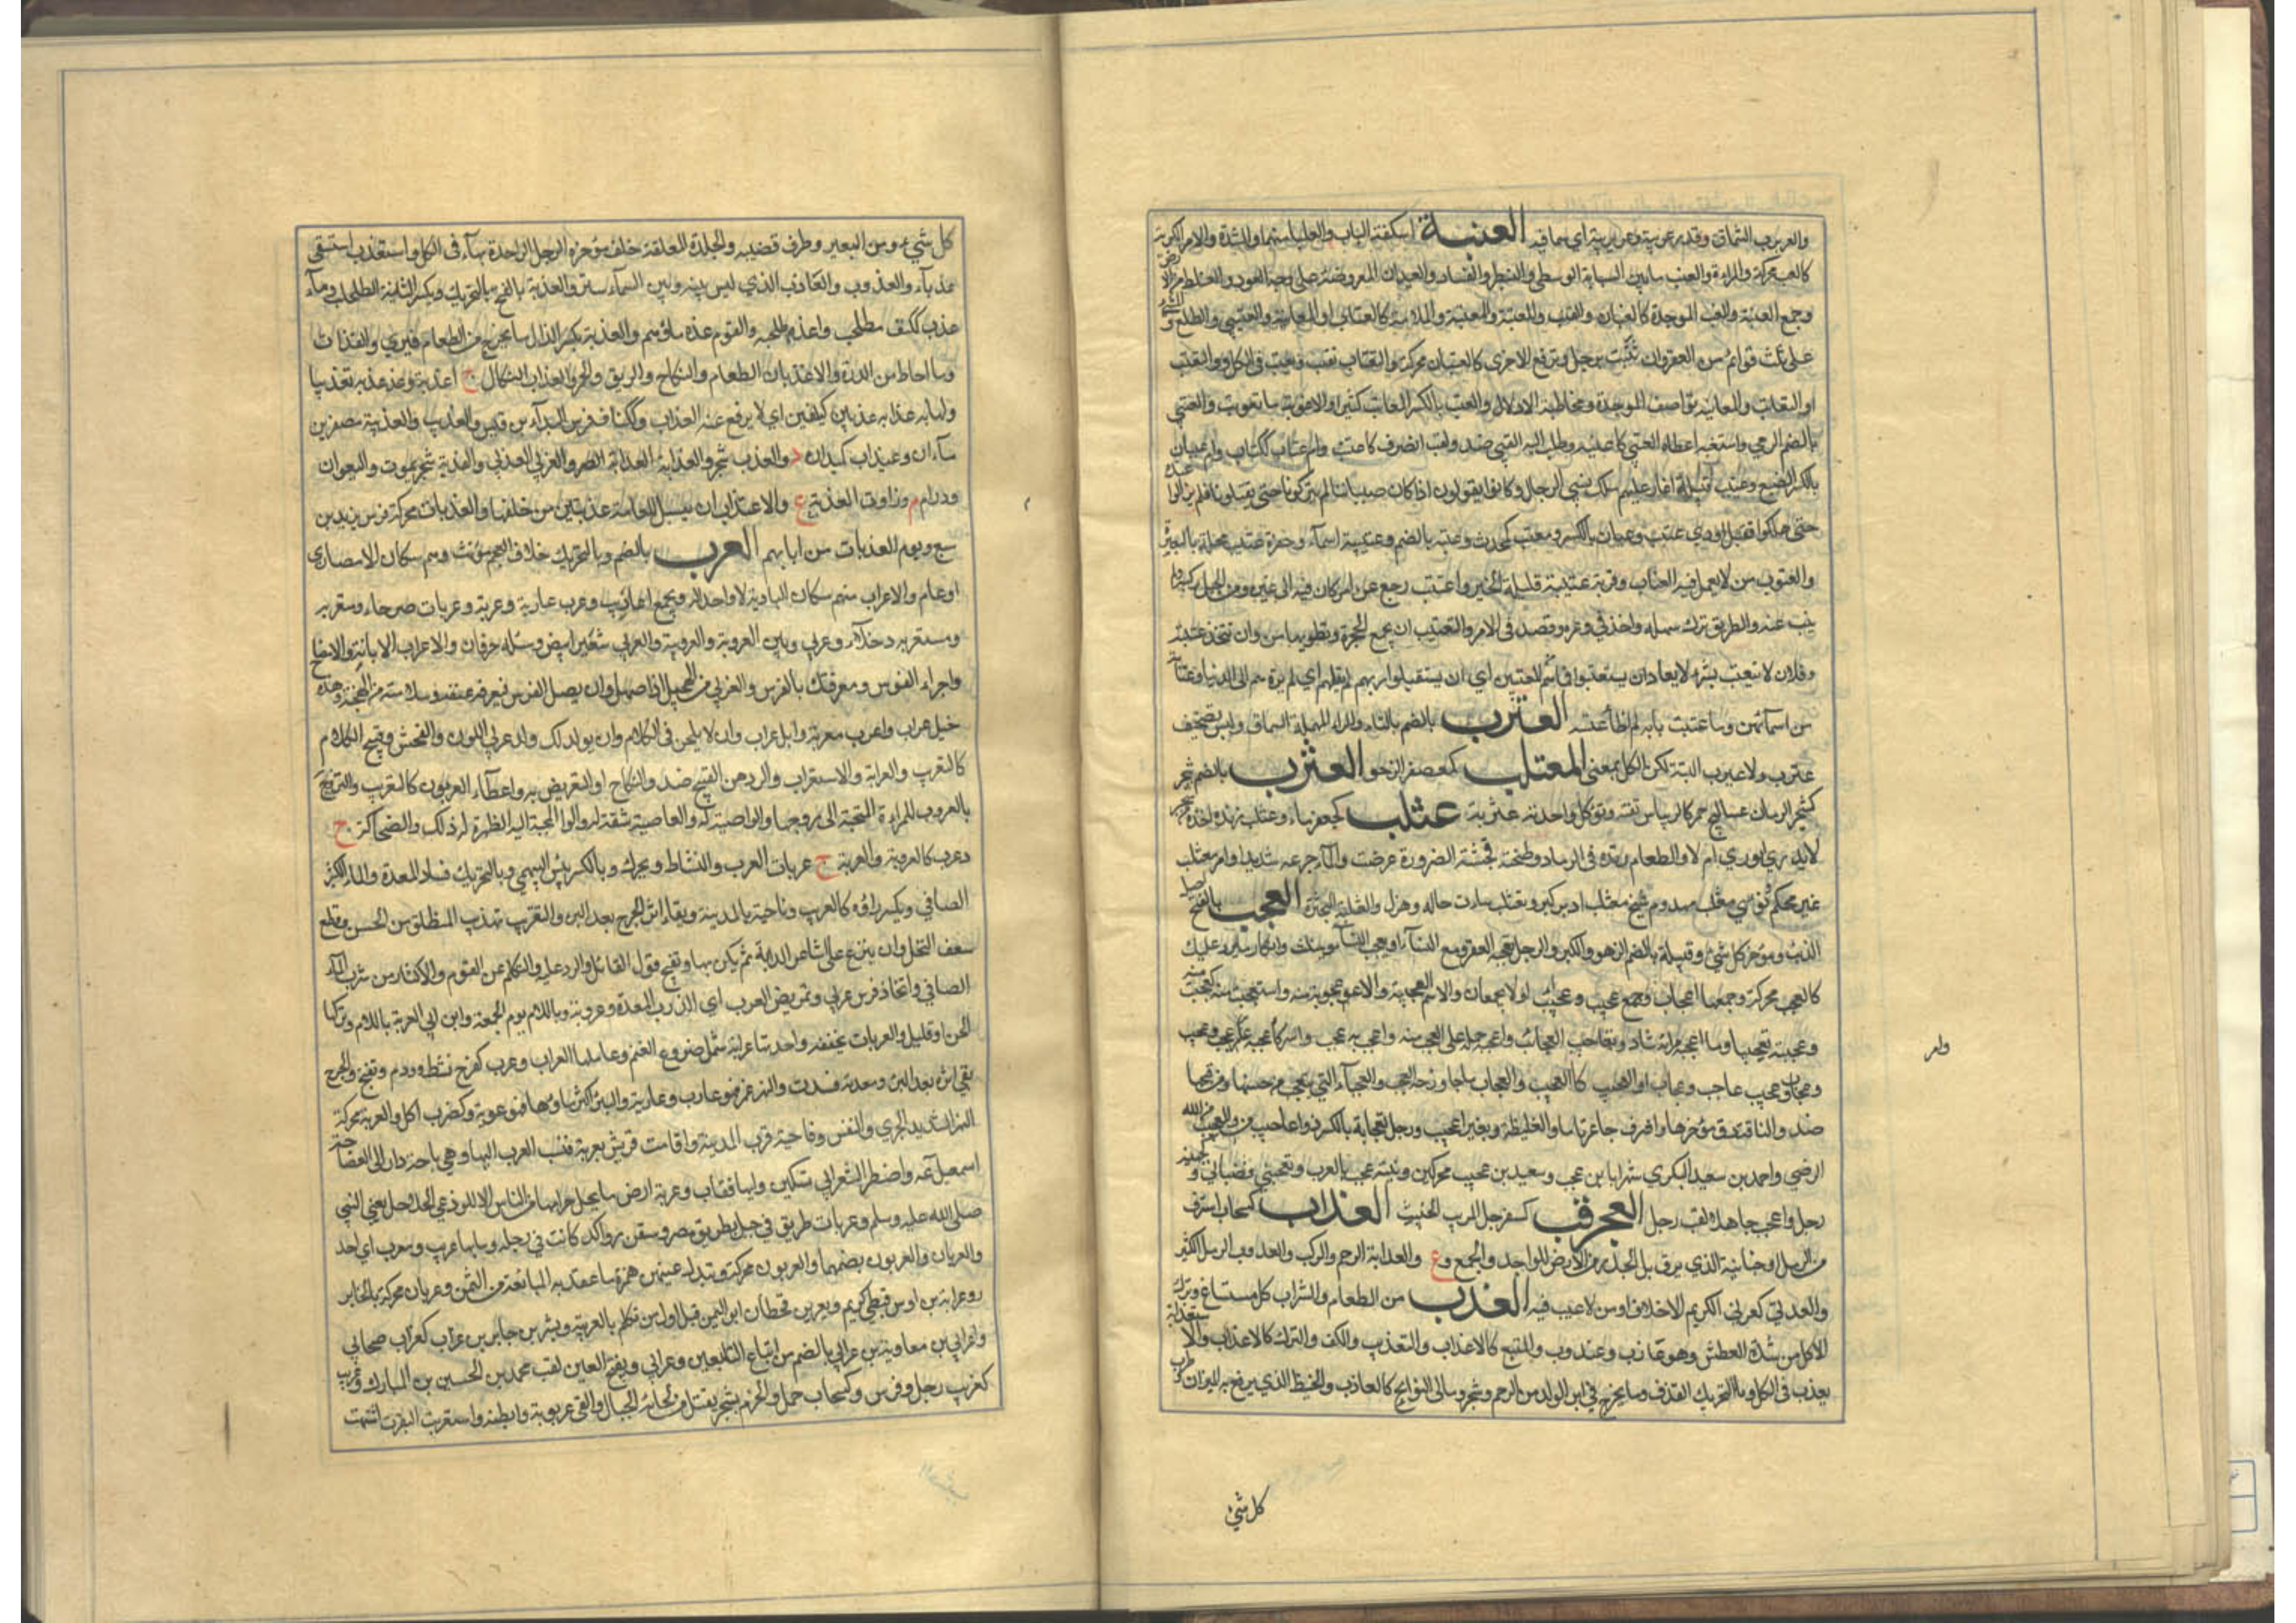 والعربرب السماق وقدر عربربية وعربربية اي سماقية العتبة اسكفة الباب والعليا منهما والشدة والامر الكريه
كالعتب محركة والمراة والعتب ما بين السبابة والوسطى والبنصر والفساد والعيدان المعروضة على وجه العود والغليظ من الارض
وجمع العتبة والعتب الموجدة كالعتبان والمعتب والمعتبة والملامة كالعتاب والمعاتبة والعتيبى والظلع والمشي
على ثلث قوائم من العقر وان تثب برجل وترفع الاخرى كالعتبان محركة والتعتاب يعتب ويعتب في الكل والتعتب
والتعاتب والمعاتبة تواصف الموجدة ومخاطبة الادلال والعتب بالكسر المعاتب كثيرا والاعتوبة ما تعوتب به والعتبى
بالضم الرضى واستعتبه اعطاه العتبى كاعتبه وطلب اليه العتبى ضد واعتب انصرف كاعتتب وام عتاب ككتاب وام عتبان
بالكسر الضبع وعتيب قبيلة اغار عليهم ملك فسبى الرجال وكانوا يقولون اذا كبر صبياننا لم يتركونا حتى يفتكونا فلم يزالوا عنده
حتى هلكوا فقيل اودى عتيب وعتبان بالكسر ومعتب كمحدث وعتبة بالضم وعتيبة اسماء وجفرة عتيب محلة بالبصرة
والعتوب من لا يعمل فيه العتاب وقرية عتيبة قليلة الخير واعتتب رجع عن امر كان فيه الى غيره ومن الجبل ركبه ولم
ينب عنه والطريق ترك سهله واخذ في وعره وقصد في الامر والتعتيب ان تجمع الحجزة وتطويها من وان تتخذ عتبة
وفلان لا يتعتب بشيء لا يعاب وان يستعتبوا فما هم من المعتبين اي ان يستقيلوا ربهم لم يقلهم اي لم يردهم الى الدنيا وعتاب
من اسمائهن وما عتبت بابه لم اطأ عتبته العترب بالضم بالتاء والراء المهملة السماق وليس تصحيف
عنزب ولا عبرب البتة لكن الكل بمعنى المعتلب كمعصفر الرخو العثرب بالضم شجر
كشجر الرمان عساليجه حمر كالريباس تقشر وتؤكل واحدته عثربة عثلب كجعفر ماء وعثلب زنده اخذه من شجر
لا يدري ايوري ام لا والطعام رمده في الرماد وطحنه فجشته لضرورة عرضت والماء جرعه شديدا وامر معثلب
غير محكم ونؤي معثلب مهدوم شيخ معثلب ادبر كبرا وتعثلب ساءت حاله وهزل والعثلبة البحثرة العجب بالفتح اصل
الذنب ومؤخر كل شيء وقبيلة بالضم الزهو والكبر والرجل يعجبه القعود مع النساء او يعجب النساء ويثلث وانكار ما يرد عليك
كالعجب محركة وجمعها اعجاب وجمع عجيب عجائب او لا يجمعان والاسم العجيبة والاعجوبة تعجبت منه واستعجبت منه كعجبت منه
وعجبته تعجيبا وما اعجبه برايه شاذ والتعاجيب العجائب واعجبه حمله على العجب منه واعجب به عجب وسر كاعجبه وامر عجب وعجيب
وعجاب وعجاب وعجب عاجب وعجاب او العجيب كالعجب والعجاب ما جاوز حد العجب والعجباء التي يتعجب من حسنها ومن قبحها
ضد والناقة دق مؤخرها واشرف جاعرتاها والغليظة وبعير اعجب ورجل تعجابة بالكسر ذو اعاجيب والعجب من الله
الرضى واحمد بن سعيد البكري شهر بابن عجب وسعيد بن عجب محركتين ومنية عجب بالمغرب وتعجبني تصباني وكجهينة
رجل واعجب جاهلا لقب رجل العجرقب كسفرجل المريب الخبيث العذاب كسحاب ما استرق
من الرمل وجانبه الذي يرق بلي الجدد من الارض للواحد والجمع وع والعدابة الرحم والركب والعدوب الرمل الكثير
والعدبي كعربي الكريم الاخلاق او من لا عيب فيه العذب من الطعام والشراب كل مستساغ وترك
الاكل من شدة العطش وهو عاذب وعذوب والمنع كالاعذاب والتعذيب والكف والترك كالاعذاب والاستعذاب
يعذب في الكل وبالتحريك القذى وما يخرج في اثر الولد من الرحم وشجر وسالى النوائح كالمعاذب والخيط الذي يرفع به الميزان وطرف
وامر
كل شيء
كل شيء ومن البعير وطرف قضيبه والجلدة المعلقة خلف مؤخرة الرحل الواحدة بهاء في الكل واستعذب استسقى
عذبا والعذوب والعاذب الذي ليس بينه وبين السماء ستر والعذبة بالفتح وبالتحريك وبكسر الثانية الطحلب وماء
عذب ككتف مطحلب واعذبه نزع طحلبه والقوم عذب ماؤهم والعذبة بكسر الذال ما يخرج من الطعام فيرمى والقذاة
وما احاط من الدرة والاعذبان الطعام والنكاح او الريق والخمر والعذاب النكال ج اعذبة وقد عذبه تعذيبا
واصابه عذاب عذبين كبلغين اي لا يرفع عنه العذاب وككتاب فرس البداء بن قيس والعذيب والعذيبة مصغرين
ماءان وعيذاب كميدان د والعذب شجر والعذابة العدابة الضرر والعذبي العدبي والعذبة شجرة تموت البعران
ودواء م وذات العذبة ع والاعتذاب ان تسبل للعمامة عذبتين من خلفها والعذبات محركة فرس يزيد بن
سبيع ويوم العذبات من ايامهم العرب بالضم وبالتحريك خلاف العجم مؤنث وهم سكان الامصار
او عام والاعراب منهم سكان البادية لا واحد له ويجمع اعاريب وعرب عاربة وعرباء وعربات صرحاء ومتعربة
ومستعربة دخلاء وعربي وبين العروبة والعروبية والعربي شعير ابيض وسنبله حرفان والاعراب الابانة والافصاح
واجراء الفرس ومعرفتك بالفرس والعربي من الهجين اذا صهل وان يصهل الفرس فيعرف عتقه وسلامته من الهجنة وهذه
خيل عراب واعرب معربة وابل عراب وان لا يلحن في الكلام وان يولد لك ولد عربي اللون والفحش وقبيح الكلام
كالتعريب والعرابة والاستعراب والرد عن القبيح ضد والنكاح او التعريض به واعطاء العربون كالتعريب والتزوج
بالعروب للمراة المتحببة الى زوجها او العاصية له او العاشقة له او المتحببة اليه المظهرة له ذلك والضحاكة ج
وعرب كالعروبة والعربة ج عربات العرب والنشاط ويحرك وبالكسر يبيس البهمى وبالتحريك فساد المعدة والماء الكثير
الصافي ويكسر راؤه كالعرب وناحية بالمدينة وبقاء اثر الجرح بعد البرء والتعريب تهذيب المنطق من اللحن وقطع
سعف النخل وان يبزغ على اشاعر الدابة ثم يكويها وتقبيح قول القائل والرد عليه والتكلم عن القوم والاكثار من شرب الماء
الصافي واتخاذ فرس عربي وتمريض العرب اي الذرب المعدة وعروبة وباللام يوم الجمعة وابن ابي العروبة باللام وتركها
لحن او قليل والعرابات مخففة واحدتها عرابة شمل ضروع الغنم وعاملها العراب وعرب كفرح نشط وورم وتقيح والجرح
بقي اثره بعد البرء ومعدته فسدت والنهر غمر فهو عارب وعاربة والبئر كثر ماؤها فهي عربة وكضرب اكل والعربة محركة
النهر الشديد الجري والنفس وناحية قرب المدينة واقامت قريش بعربة فنسب العرب اليها وهي باحة دار ابي الفصاحة
اسمعيل عه واضطر الشاعر الى تسكين رائها فقال وعربة ارض ما يحل حرامها من الناس الا اللوذعي الحلاحل يعني النبي
صلى الله عليه وسلم وعربات طريق في جبل بطريق مصر وسفن رواكد كانت في دجلة وما بها عريب ومعرب اي احد
والعربان والعربون بضمهما والعربون محركة وتبدل عينهن همزة ما عقد به المبايعة من الثمن وعربان محركة بالخابور
وعرابة بن اوس قبطي كريم ويعرب بن قحطان ابو اليمن قيل اول من تكلم بالعربية وبشير بن جابر بن عراب كغراب صحابي
واعرابي بن معاوية بن عرابي بالضم من اتباع التابعين وعرابي وبفتح العين لقب محمد بن الحسين بن المبارك وعريب
كغريب رجل وفرس وكسحاب حمل والخزم بشجر يفتل من لحائه الحبال والقى عربونه وابطنه واستعربت البقرة اشتهت